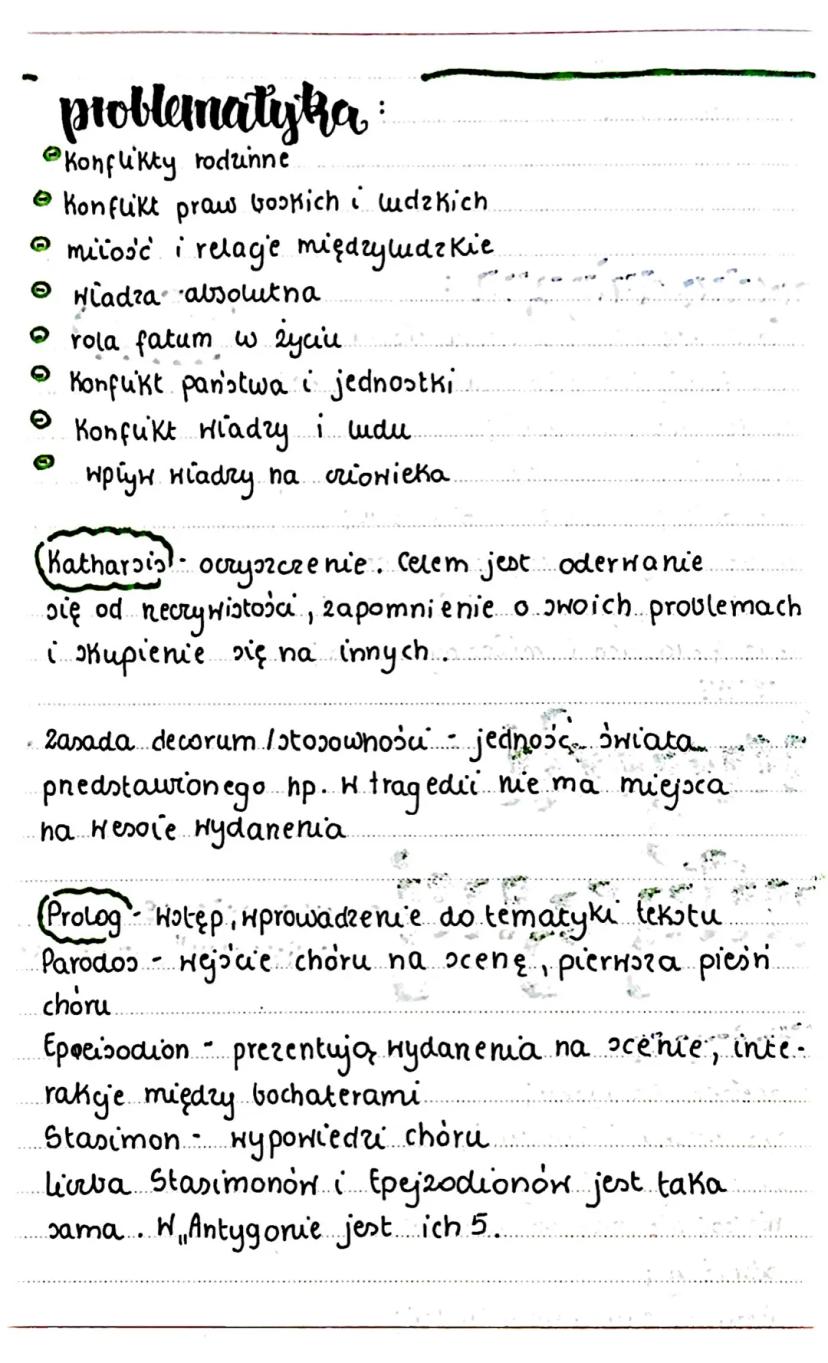 problematyka:
Konflikty rodzinne
Konflikt praw boskich i ludzkich
miłość i relacje międzyludzkie
władza absolutna
rola fatum w życiu
Konfukt państwa i jednostki
Konfukt władzy i ludu
wpływ władzy na człowieka
Katharsis - oczyszczenie. Celem jest oderwanie
się od rzeczywistości, zapomnienie o swoich problemach
i skupienie się na innych.
Zasada decorum /stosowności - jedność świata
przedstawionego np. w tragedii nie ma miejsca
na wesołe wydarzenia
Prolog - wstęp, wprowadzenie do tematyki tekstu
Parodos - wejście chóru na scenę, pierwsza pieśń
chóru
Epeisodion - prezentują wydarzenia na scenie, inte-
rakcje między bochaterami
Stasimon - wypowiedzi chóru
Liczba Stasimonów i Epejzodionów jest taka
sama. W „Antygonie jest ich 5.